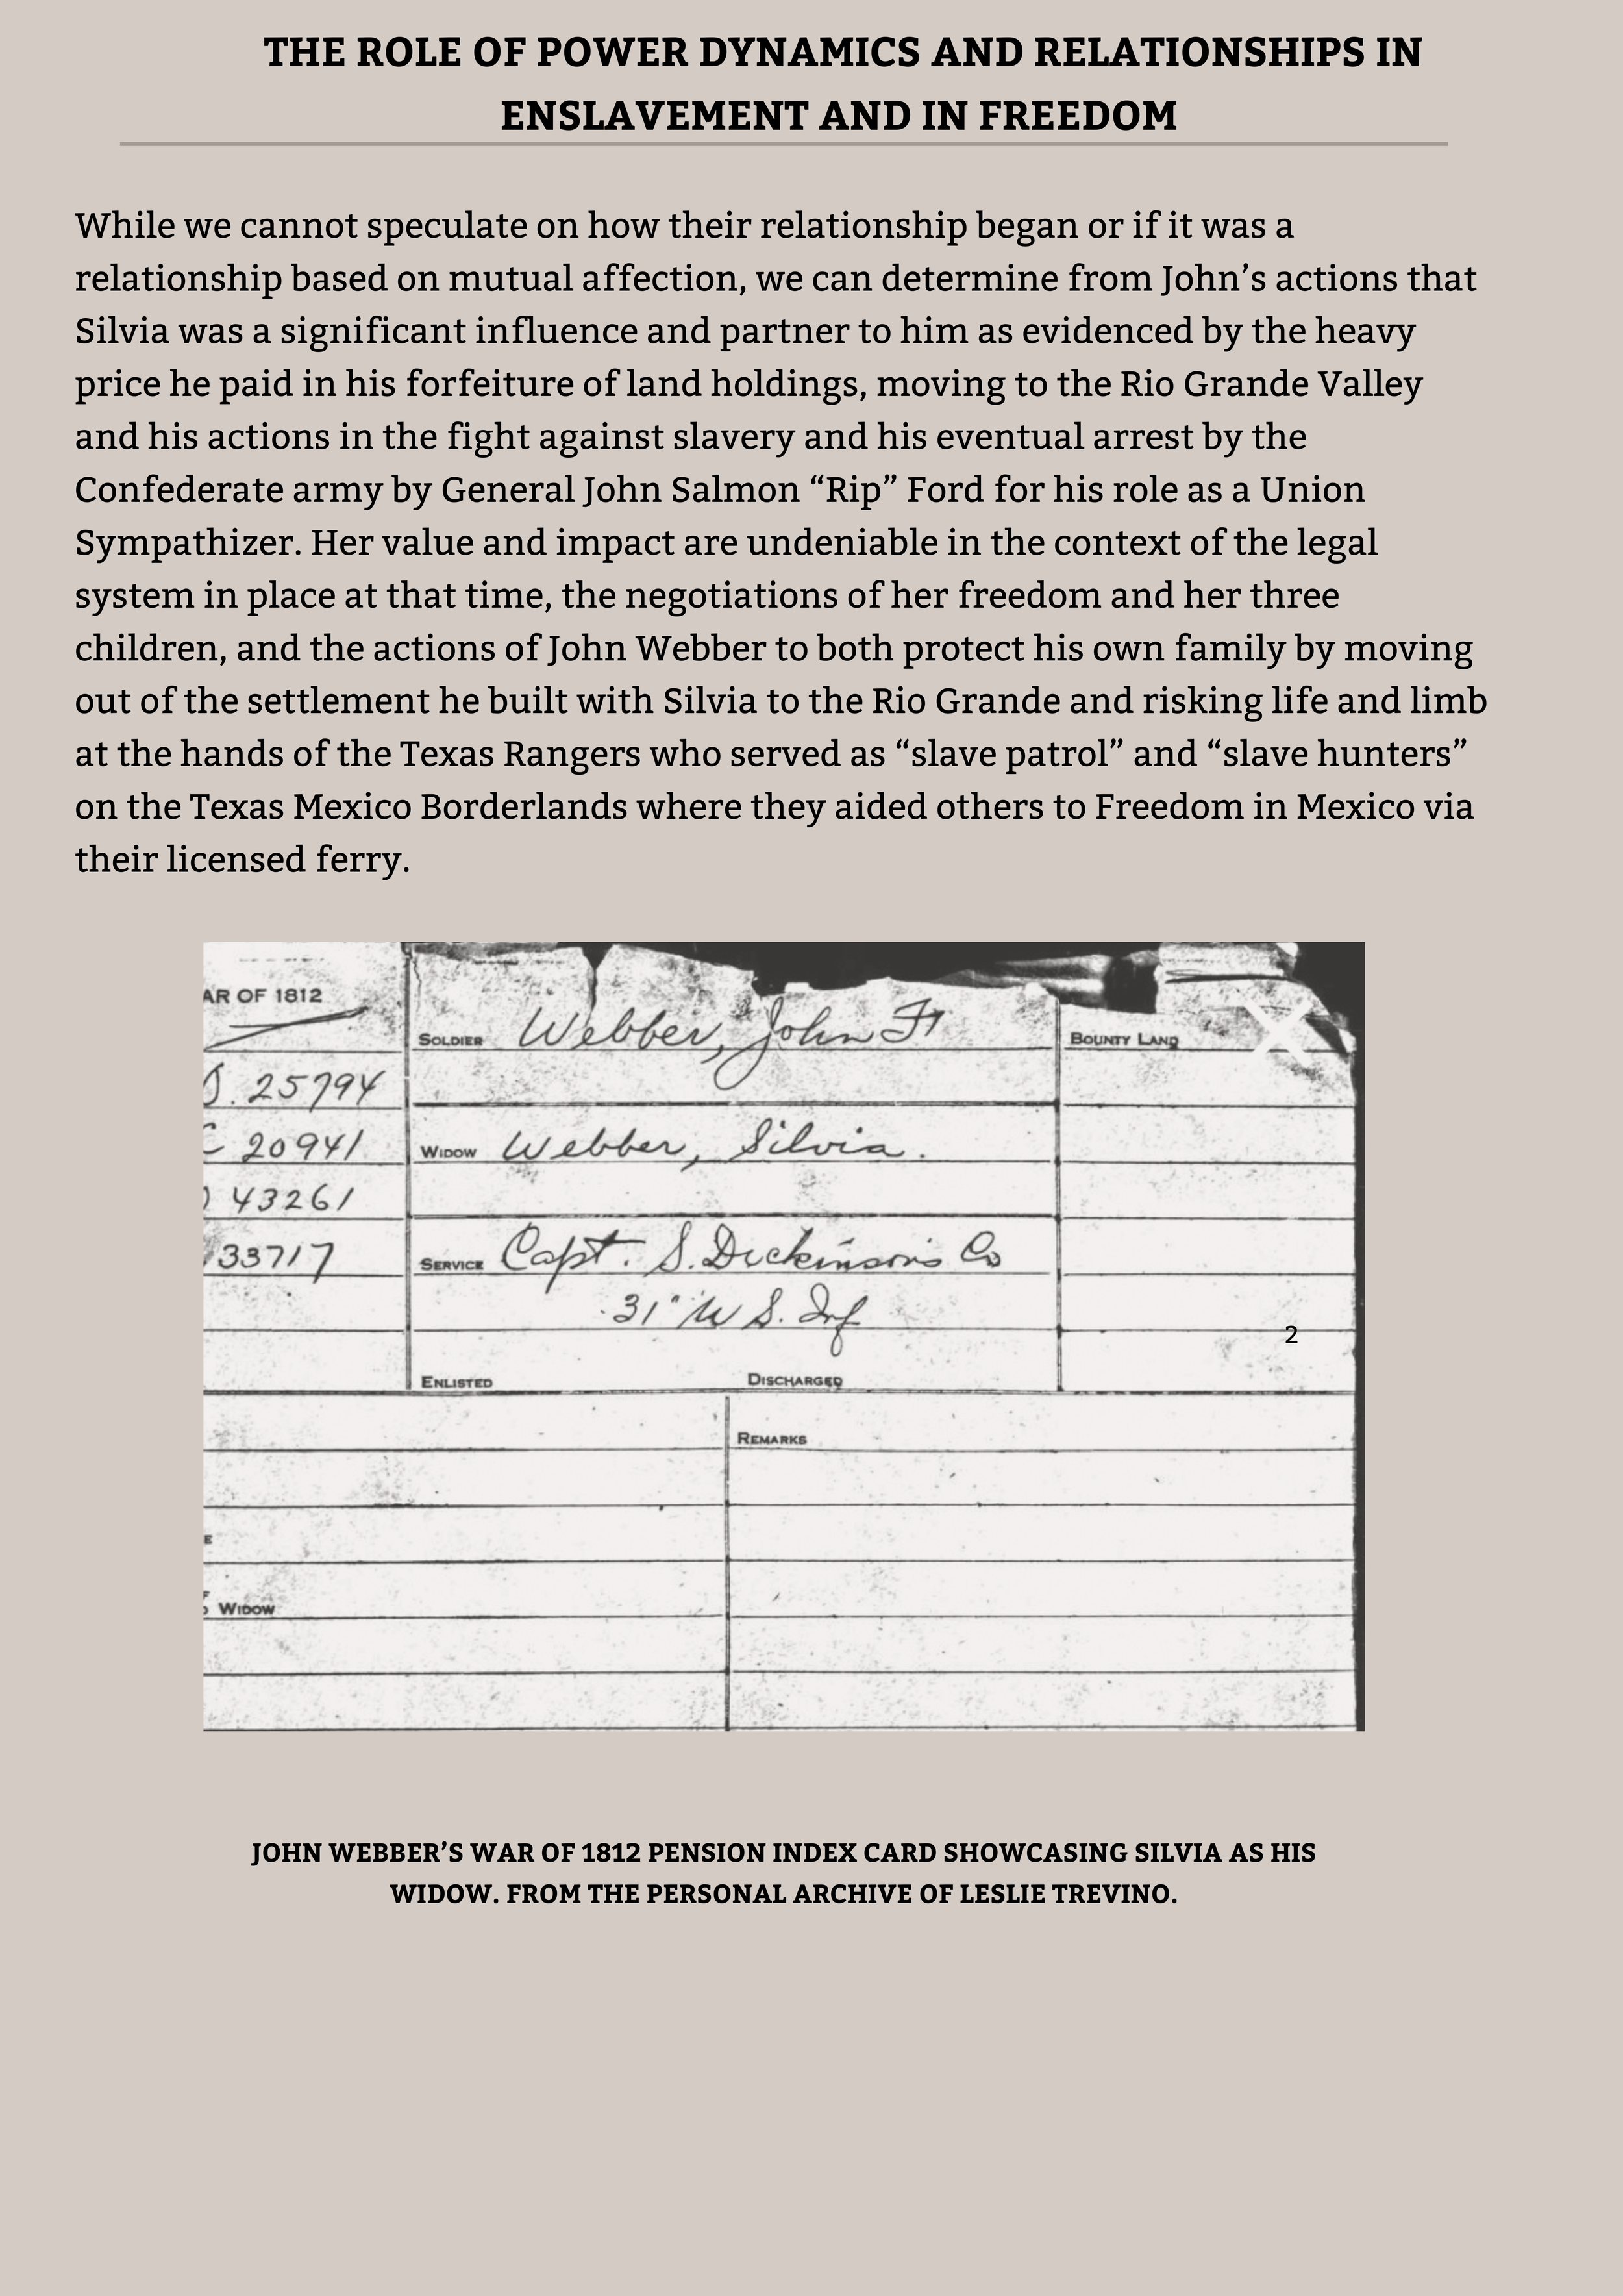 THE ROLE OF POWER DYNAMICS AND RELATIONSHIPS IN
ENSLAVEMENT AND IN FREEDOM
While we cannot speculate on how their relationship began or if it was a
relationship based on mutual affection, we can determine from John’s actions that
Silvia was a significant influence and partner to him as evidenced by the heavy
price he paid in his forfeiture of land holdings, moving to the Rio Grande Valley
and his actions in the fight against slavery and his eventual arrest by the
Confederate army by General John Salmon “Rip” Ford for his role as a Union
Sympathizer. Her value and impact are undeniable in the context of the legal
system in place at that time, the negotiations of her freedom and her three
children, and the actions of John Webber to both protect his own family by moving
out of the settlement he built with Silvia to the Rio Grande and risking life and limb
at the hands of the Texas Rangers who served as “slave patrol” and “slave hunters”
on the Texas Mexico Borderlands where they aided others to Freedom in Mexico via
their licensed ferry.
AR OF 1812
25794
20941
43261
33717
SOLDIER Webber, John
WIDOW Webber, Silvia.
SERVICE Capt. S. Dickinson's Co
31" U S. Inf
ENLISTED DISCHARGED
BOUNTY LAND
2
REMARKS
WIDOW
JOHN WEBBER’S WAR OF 1812 PENSION INDEX CARD SHOWCASING SILVIA AS HIS
WIDOW. FROM THE PERSONAL ARCHIVE OF LESLIE TREVINO.